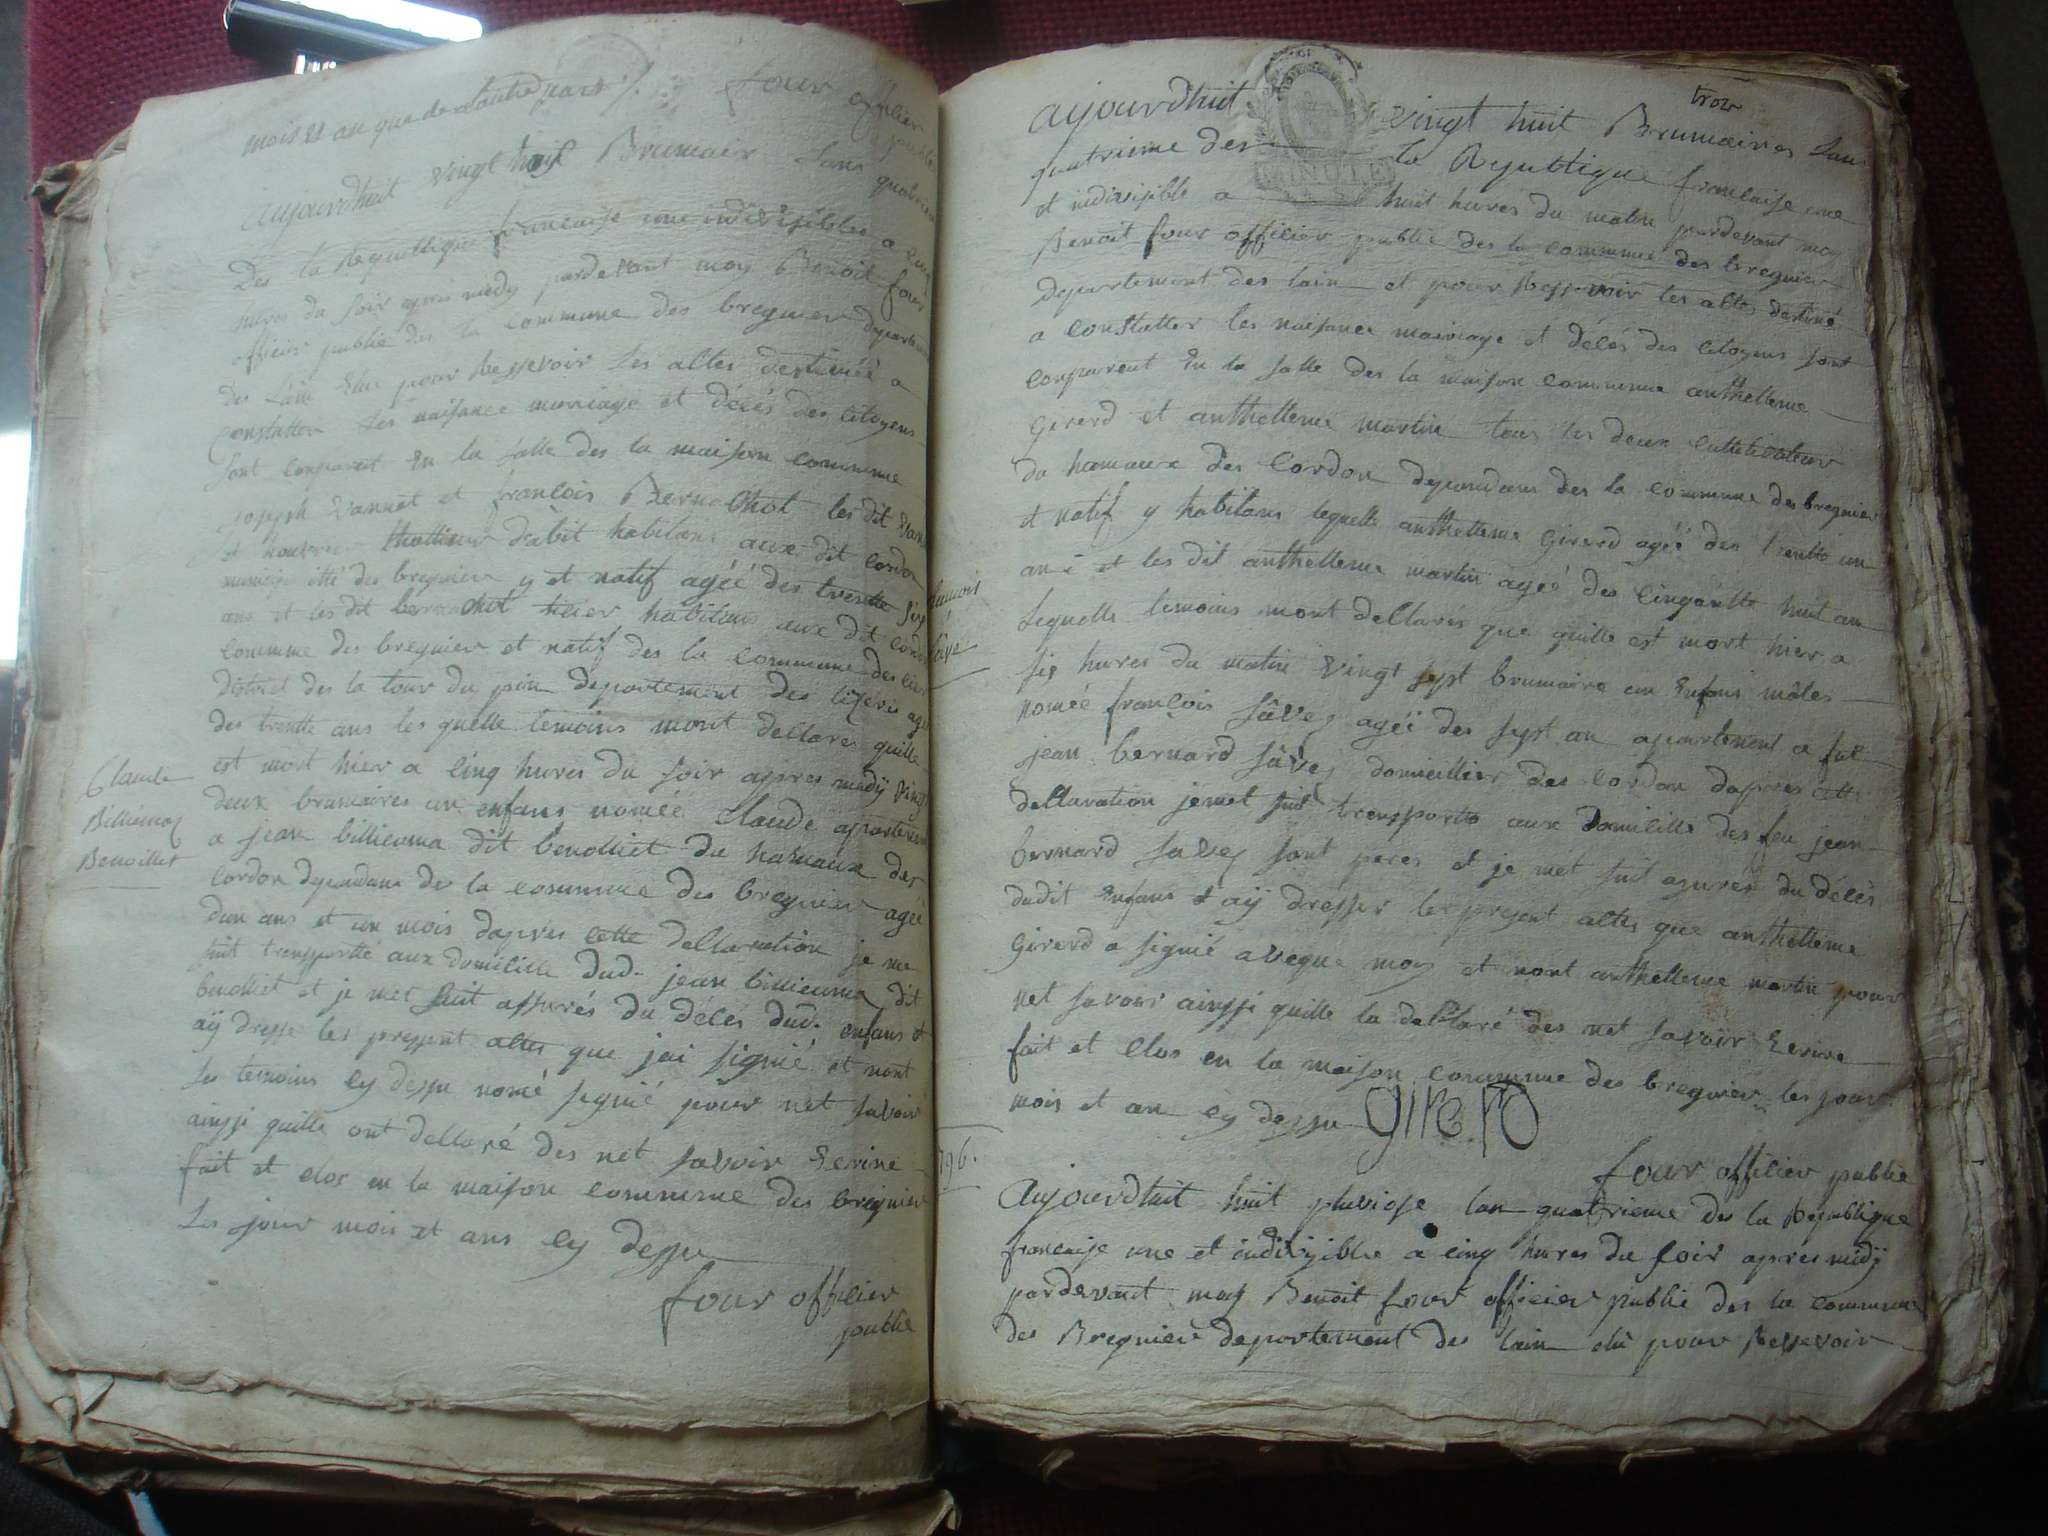 mois et an que de lautre pars
four officier
public
aujourdhuit vingt huit Brumaire lans quatrieme
Des la Republique francaise une indivisible a cinq
hures du soir apres midy pardevant moy Benoit four
officier public des la commune des bregnier departement
des Lain elus pour Ressevoir les altes destinéé a
constatter les naisance mariage et décés des citoyens
sont conparut En la salle des la maison commune
joseph vannet et francois Bernachot les dit
habitans aux dit cordon
des bregnier y et natif agéé des trentte sept
ans et les dit bernachot habitans aux dit cordon
commune des bregnier et natif des la commune des
district des la tour du pin departement des lizeres agéé
des trentte ans les quelle temoins mont dellarés quille
est mort hier a cinq hures du soir apres midÿ vingt
deux brumaires un enfans noméé Claude apartenent
a jean billiema dit benoilliet du hamaux des
cordon dependans de la commune des bregnier agéé
dun ans et un mois dapres cette dellaration je me
suit transportté aux domicille dud. jean billiema dit
benolliet et je met suit assurés du décés dud. enfans et
aÿ dresse les pressent altes que jai signié et nont
les temoins cy dessu nomé signié pour net savoir
ainssi quille ont dellaré des net savoir Ecrire
fait et clos en la maison commune des bregnier
Les jour mois et ans cy dessu
four officier
public
Claude
Billiemaz
Benoillet
trois
aujourdhuit vingt huit Brumaires Lan
quatrieme des la Republique francaise une
et indivisible a huit hures du matin pardevant moy
Benoit four officier public des la commune des bregnier
departement des lain et pour Ressevoir les altes destiné
a constatter les naisance mairiage et décés des citoyens sont
conparent En la salle des la maison commune anthelleme
Girerd et anthelleme martin tous les deux cultivateur
du hamaux des Cordon dependans des la commune des bregnier
et natif y habitans lequelle anthelleme Girerd agéé des trentte un
an et les dit anthelleme martin agéé des cinqantte huit an
Lequelle temoins mont dellarés que quille est mort hier a
six hures du matin vingt sept brumaire un Enfans mâles
noméé françois sâvey agéé des sept an apartenent a fut
jean bernard sâvey domicillier des cordon dapres cette
dellaration jemet suit transportte aux Domicille des feu jean
bernard savey sont peres et je mét suit asurés du décés
dudit Enfans et aÿ dresser les present altes que anthelleme
Girerd a signié aveque moy et nont anthelleme martin pour
net savoir ainssi quille la dellaré des net savoir Ecrire
fait et clos en la maison commune des bregnier les jour
mois et an cy dessu Girerd
four officier public
796.
Aujourdhuit huit pluviose lan quatrieme des la Republique
francaise une et indivisible a cinq hures du soir apres midÿ
pardevant moy Benoit four officier public des la commune
des Bregnier departement des lain elu pour Ressevoir